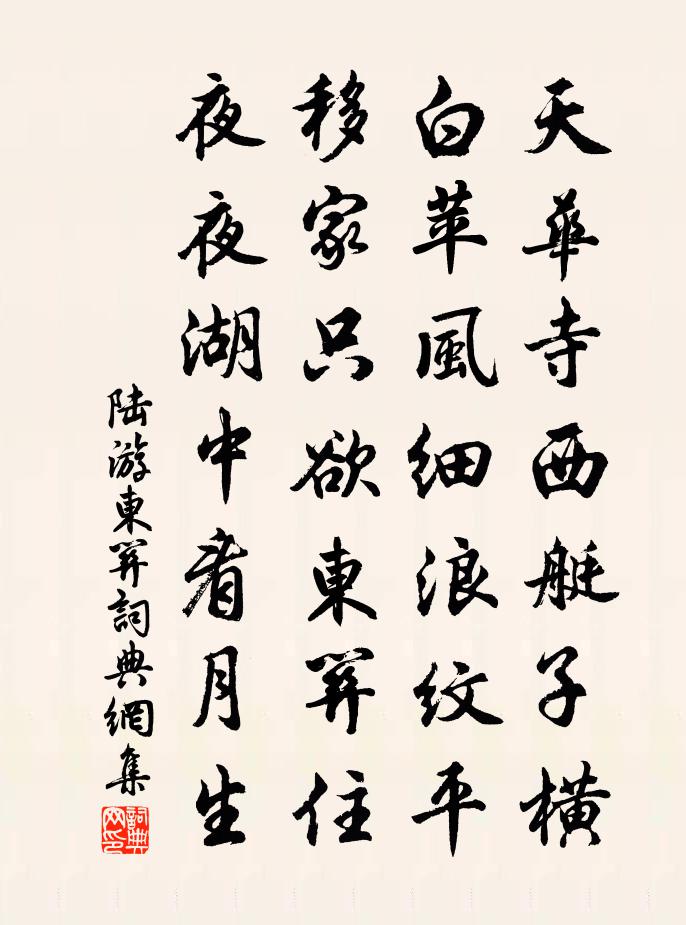 天華寺西艇子橫
白苹風細浪紋平
移家只欲東關住
夜夜湖中看月生
陸游東關詞典網集
詞典網印